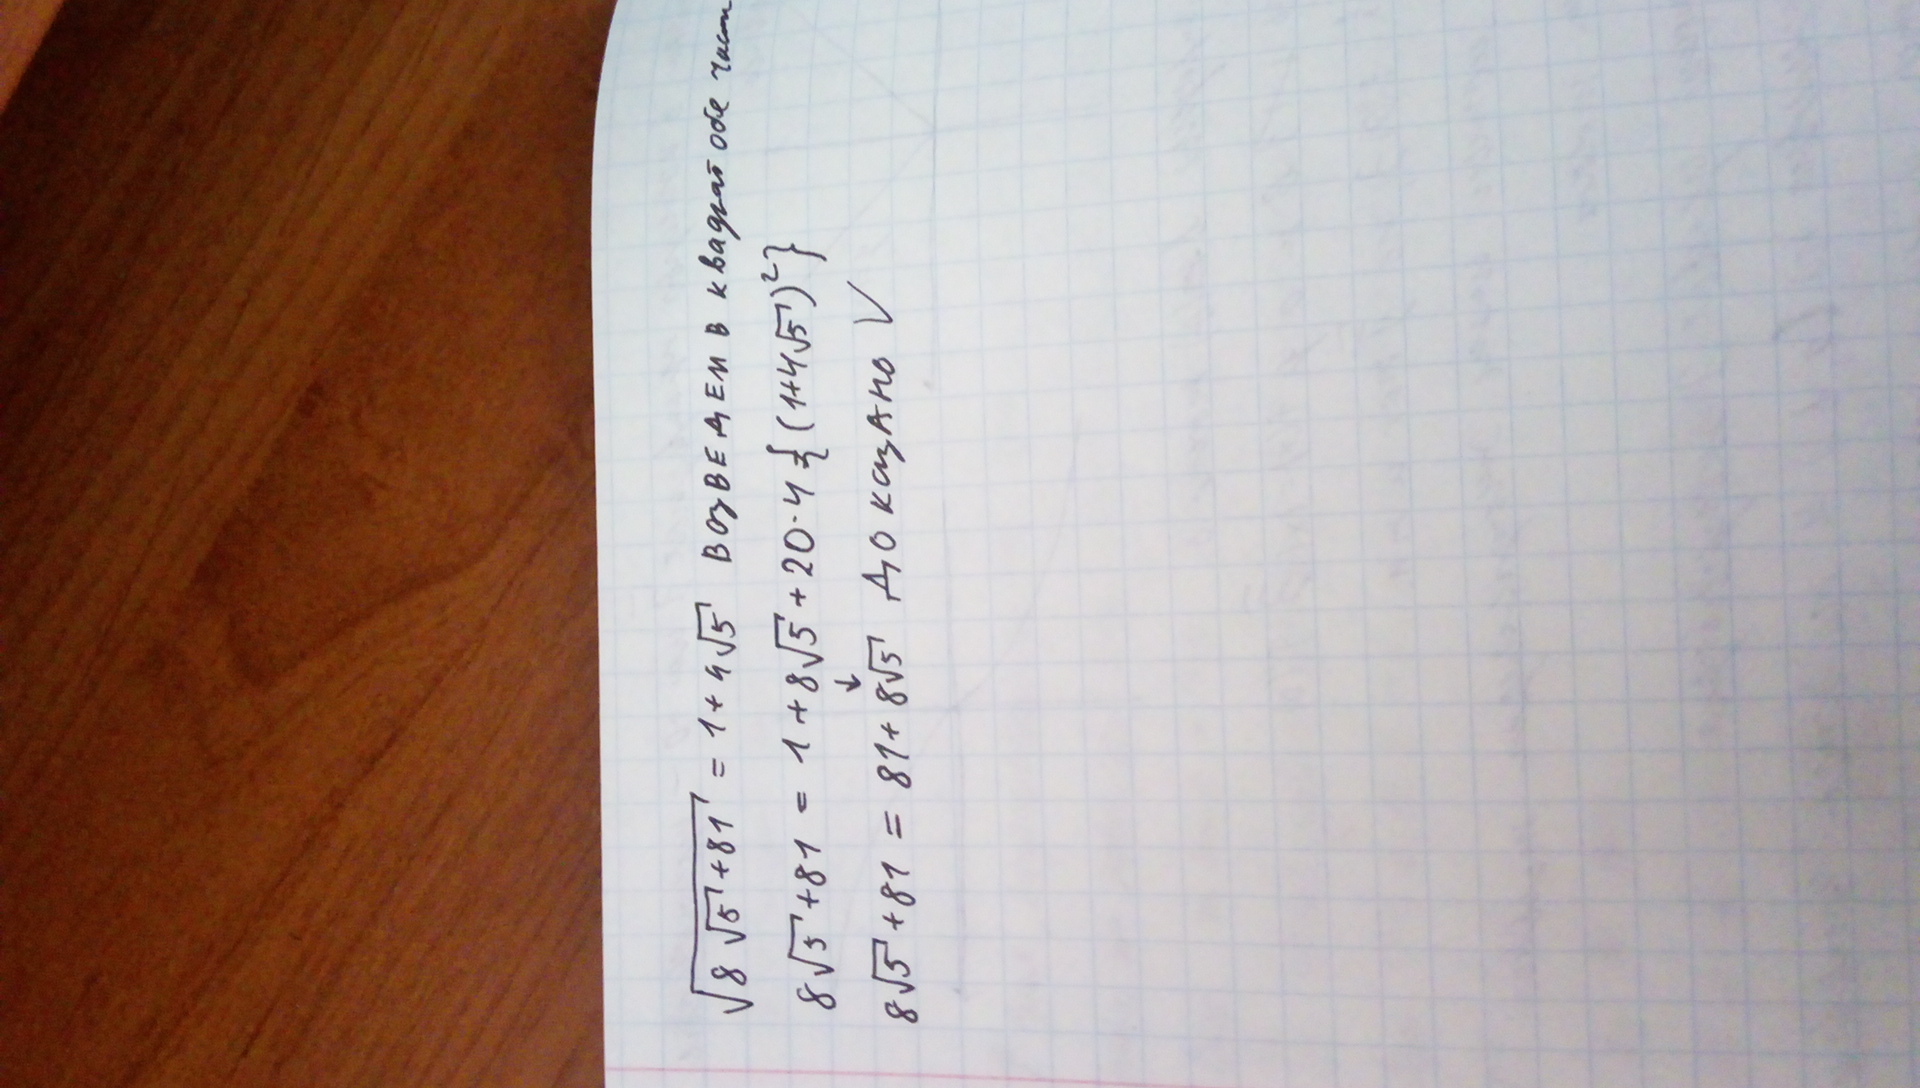 √(8√5+81) = 1+4√5 Возведем в квадрат обе части
8√5+81 = 1+8√5+20·4 {(1+4√5)²}
↓
8√5+81 = 81+8√5 Доказано ✓